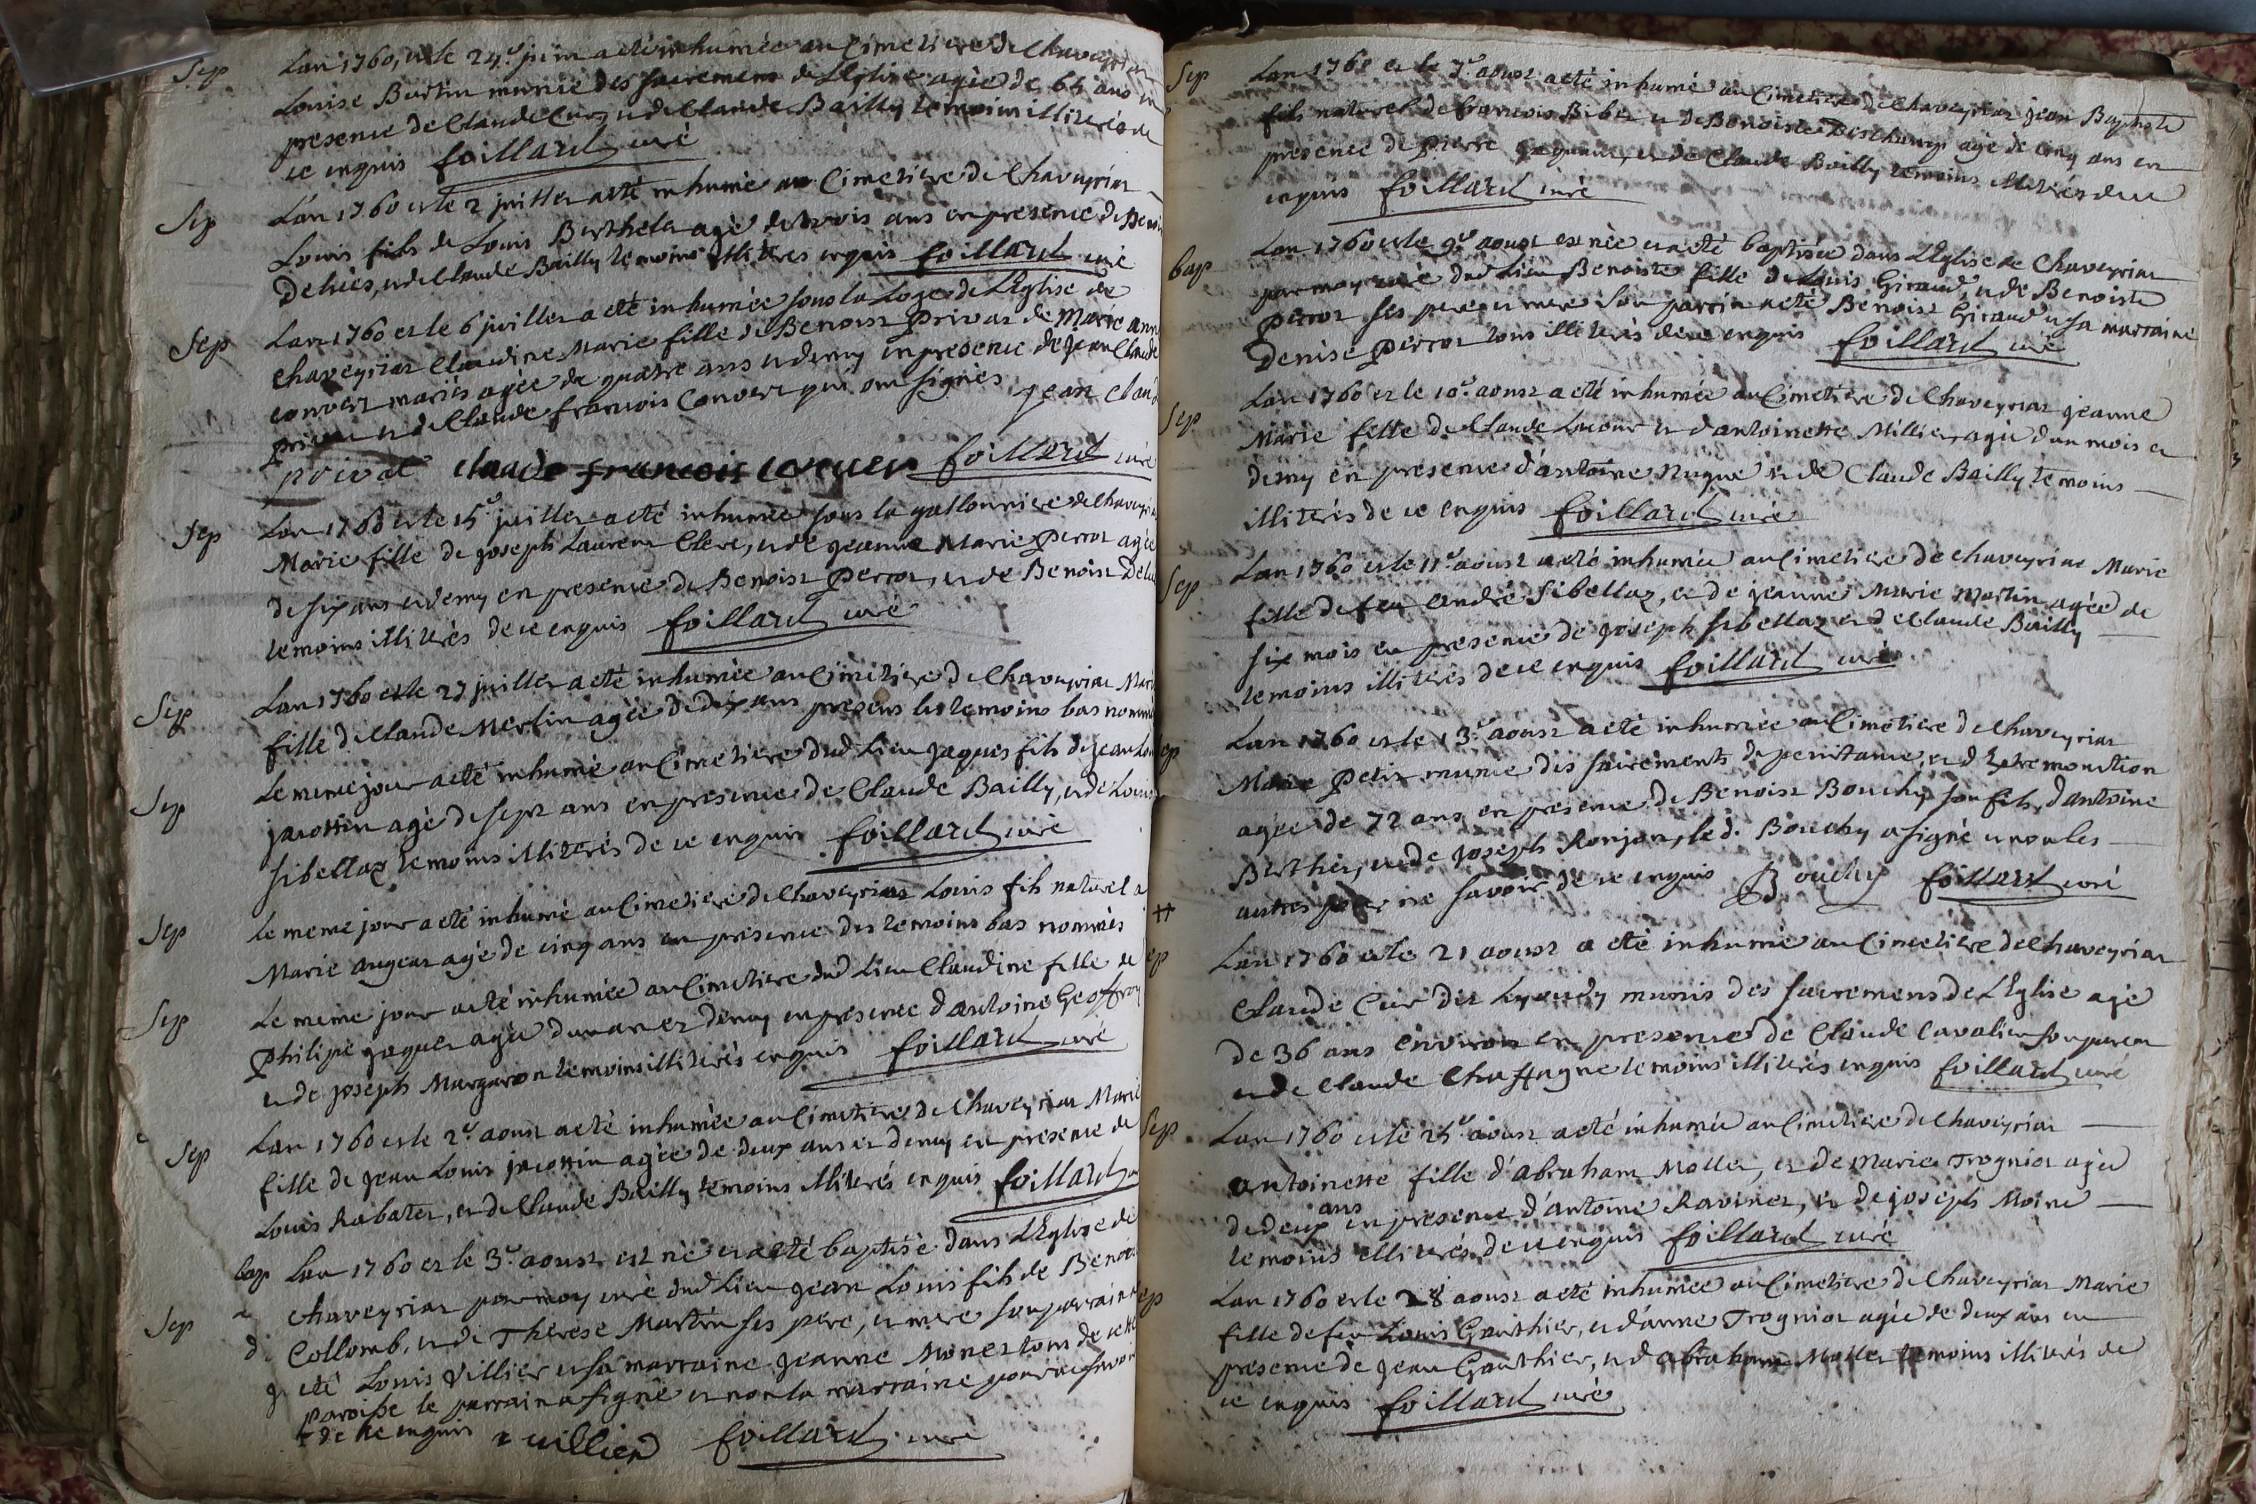 Sep Lan 1760, et le 24e juin a eté inhumée au Cimetiere de Chaveyriat
Louise Burtin munie des sacremens de L'Eglise agée de 65 ans en
presence de Claude Curt et de Claude Bailly temoins illiterés de
ce enquis foillard curé
Sep L'an 1760 et le 2 juillet a eté inhumé au Cimetiere de Chaveyriat
Louis fils de Louis Berthelet agé de trois ans en presence de Benoist
et de Claude Bailly temoins illiteres enquis foillard curé
Sep Lan 1760 et le 6 juillet a eté inhumée sous la Loge de L'Eglise de
chaveyriat Claudine Marie fille de Benoist Privat de Marie anne
convert mariés agée de quatre ans et demy en presence de Jean Claude
privat et de Claude francois Convert qui ont signés jean claude
privat claude francois convert foillard curé
Sep Lan 1760 et le 15e juillet a eté inhumée sous la gallonniere de Chaveyriat
Marie fille de joseph Laurent Clerc, et de jeanne Marie Perrot agée
de six ans et demy en presence de Benoist Perrot, et de Benoist
temoins illiterés de ce enquis foillard curé
Sep Lan 1760 et le 27 juillet a eté inhumée au Cimetiere de Chaveyriat Marie
fille de Claude Merlin agée de dix ans presens les temoins bas nommés
Sep Le meme jour a eté inhumé au Cimetiere dud Lieu Jaques fils de Jean Louis
jacottin agé de sept ans en presence de Claude Bailly, et de Louis
sibellaz temoins illiterés de ce enquis foillard curé
Sep Le meme jour a eté inhumé au Cimetiere de Chaveyriat Louis fils naturel a
Marie angeat agé de cinq ans en presence des temoins bas nommés
Sep Le meme jour a eté inhumée au Cimetiere dud Lieu Claudine fille de
Philipe jaquet agée dun an et demy en presence d'antoine Geoffroy
et de joseph Margaron temoins illiterés enquis foillard curé
Sep Lan 1760 et le 2e aoust a eté inhumée au Cimetiere de Chaveyriat Marie
fille de Jean Louis jacottin agée de deux ans et demy en presence de
Louis Rabatet, et de Claude Bailly temoins illiterés enquis foillard curé
bap Lan 1760 et le 3e aoust est né et a eté baptisé dans L'Eglise de
chaveyriat par moy curé dud Lieu jean Louis fils de Benoist
Sep Collomb, et de Therese Martin ses pere, et mere son parrain a
eté Louis Villier et sa marraine Jeanne Monet tous de cette
paroisse le parrain a signé et non la marraine pour ne savoir
de ce enquis vuillier foillard curé
Sep Lan 1760 et le 7e aoust a eté inhumé au Cimetiere de Chaveyriat jean Baptiste
fils naturel de francois Bibet et de Benoiste Deschamps agé de cinq ans en
presence de Pierre et de Claude Bailly temoins illiterés de ce
enquis foillard curé
bap Lan 1760 et le 9e aoust est née et a eté baptisée dans L'Eglise de Chaveyriat
par moy curé dud Lieu Benoiste fille de Louis Giraud, et de Benoiste
Perrot ses pere et mere son parrin a eté Benoist Giraud et sa marraine
Denise Perrot tous illiterés de ce enquis foillard curé
Sep Lan 1760 et le 10e aoust a eté inhumée au Cimetiere de Chaveyriat jeanne
Marie fille de Claude Lacour et d'antoinette Millier agée dun mois et
demy en presence d'antoine Nuguet et de Claude Bailly temoins
illiterés de ce enquis foillard curé
Sep Lan 1760 et le 11e aoust a eté inhumée au Cimetiere de chaveyriat Marie
fille de feu andré sibellaz, et de jeanne Marie Martin agée de
six mois en presence de joseph sibellaz et de Claude Bailly
temoins illiterés de ce enquis foillard curé
ep Lan 1760 et le 13e aoust a eté inhumée au Cimetiere de Chaveyriat
Marie Petit munie des sacrements de penitance, et d'Extremonction
agée de 72 ans en presence de Benoist Bouchy son fils, d'antoine
Berthier, et de joseph Ronjon, le d. Bouchy a signé et non les
autres pour ne savoir de ce enquis Bouchy foillard curé
ep Lan 1760 et le 21 aoust a eté inhumé au Cimetiere de Chaveyriat
Claude Cuir munis des sacremens de L'Eglise agé
de 36 ans environ en presence de Claude Cavalier son parent
et de Claude Chaffagne temoins illiterés enquis foillard curé
Sep Lan 1760 et le 25e aoust a eté inhumée au Cimetiere de Chaveyriat
antoinette fille d'abraham Mollet, et de Marie Trogniat agée
de deux ans en presence d'antoine Ravinet, et de joseph Moine
temoins illiterés de ce enquis foillard curé
ep Lan 1760 et le 28 aoust a eté inhumée au Cimetiere de Chaveyriat Marie
fille de feu Louis Gauthier, et d'anne Trogniat agée de deux ans en
presence de Jean Gauthier, et d'abraham Mollet temoins illiterés de
ce enquis foillard curé